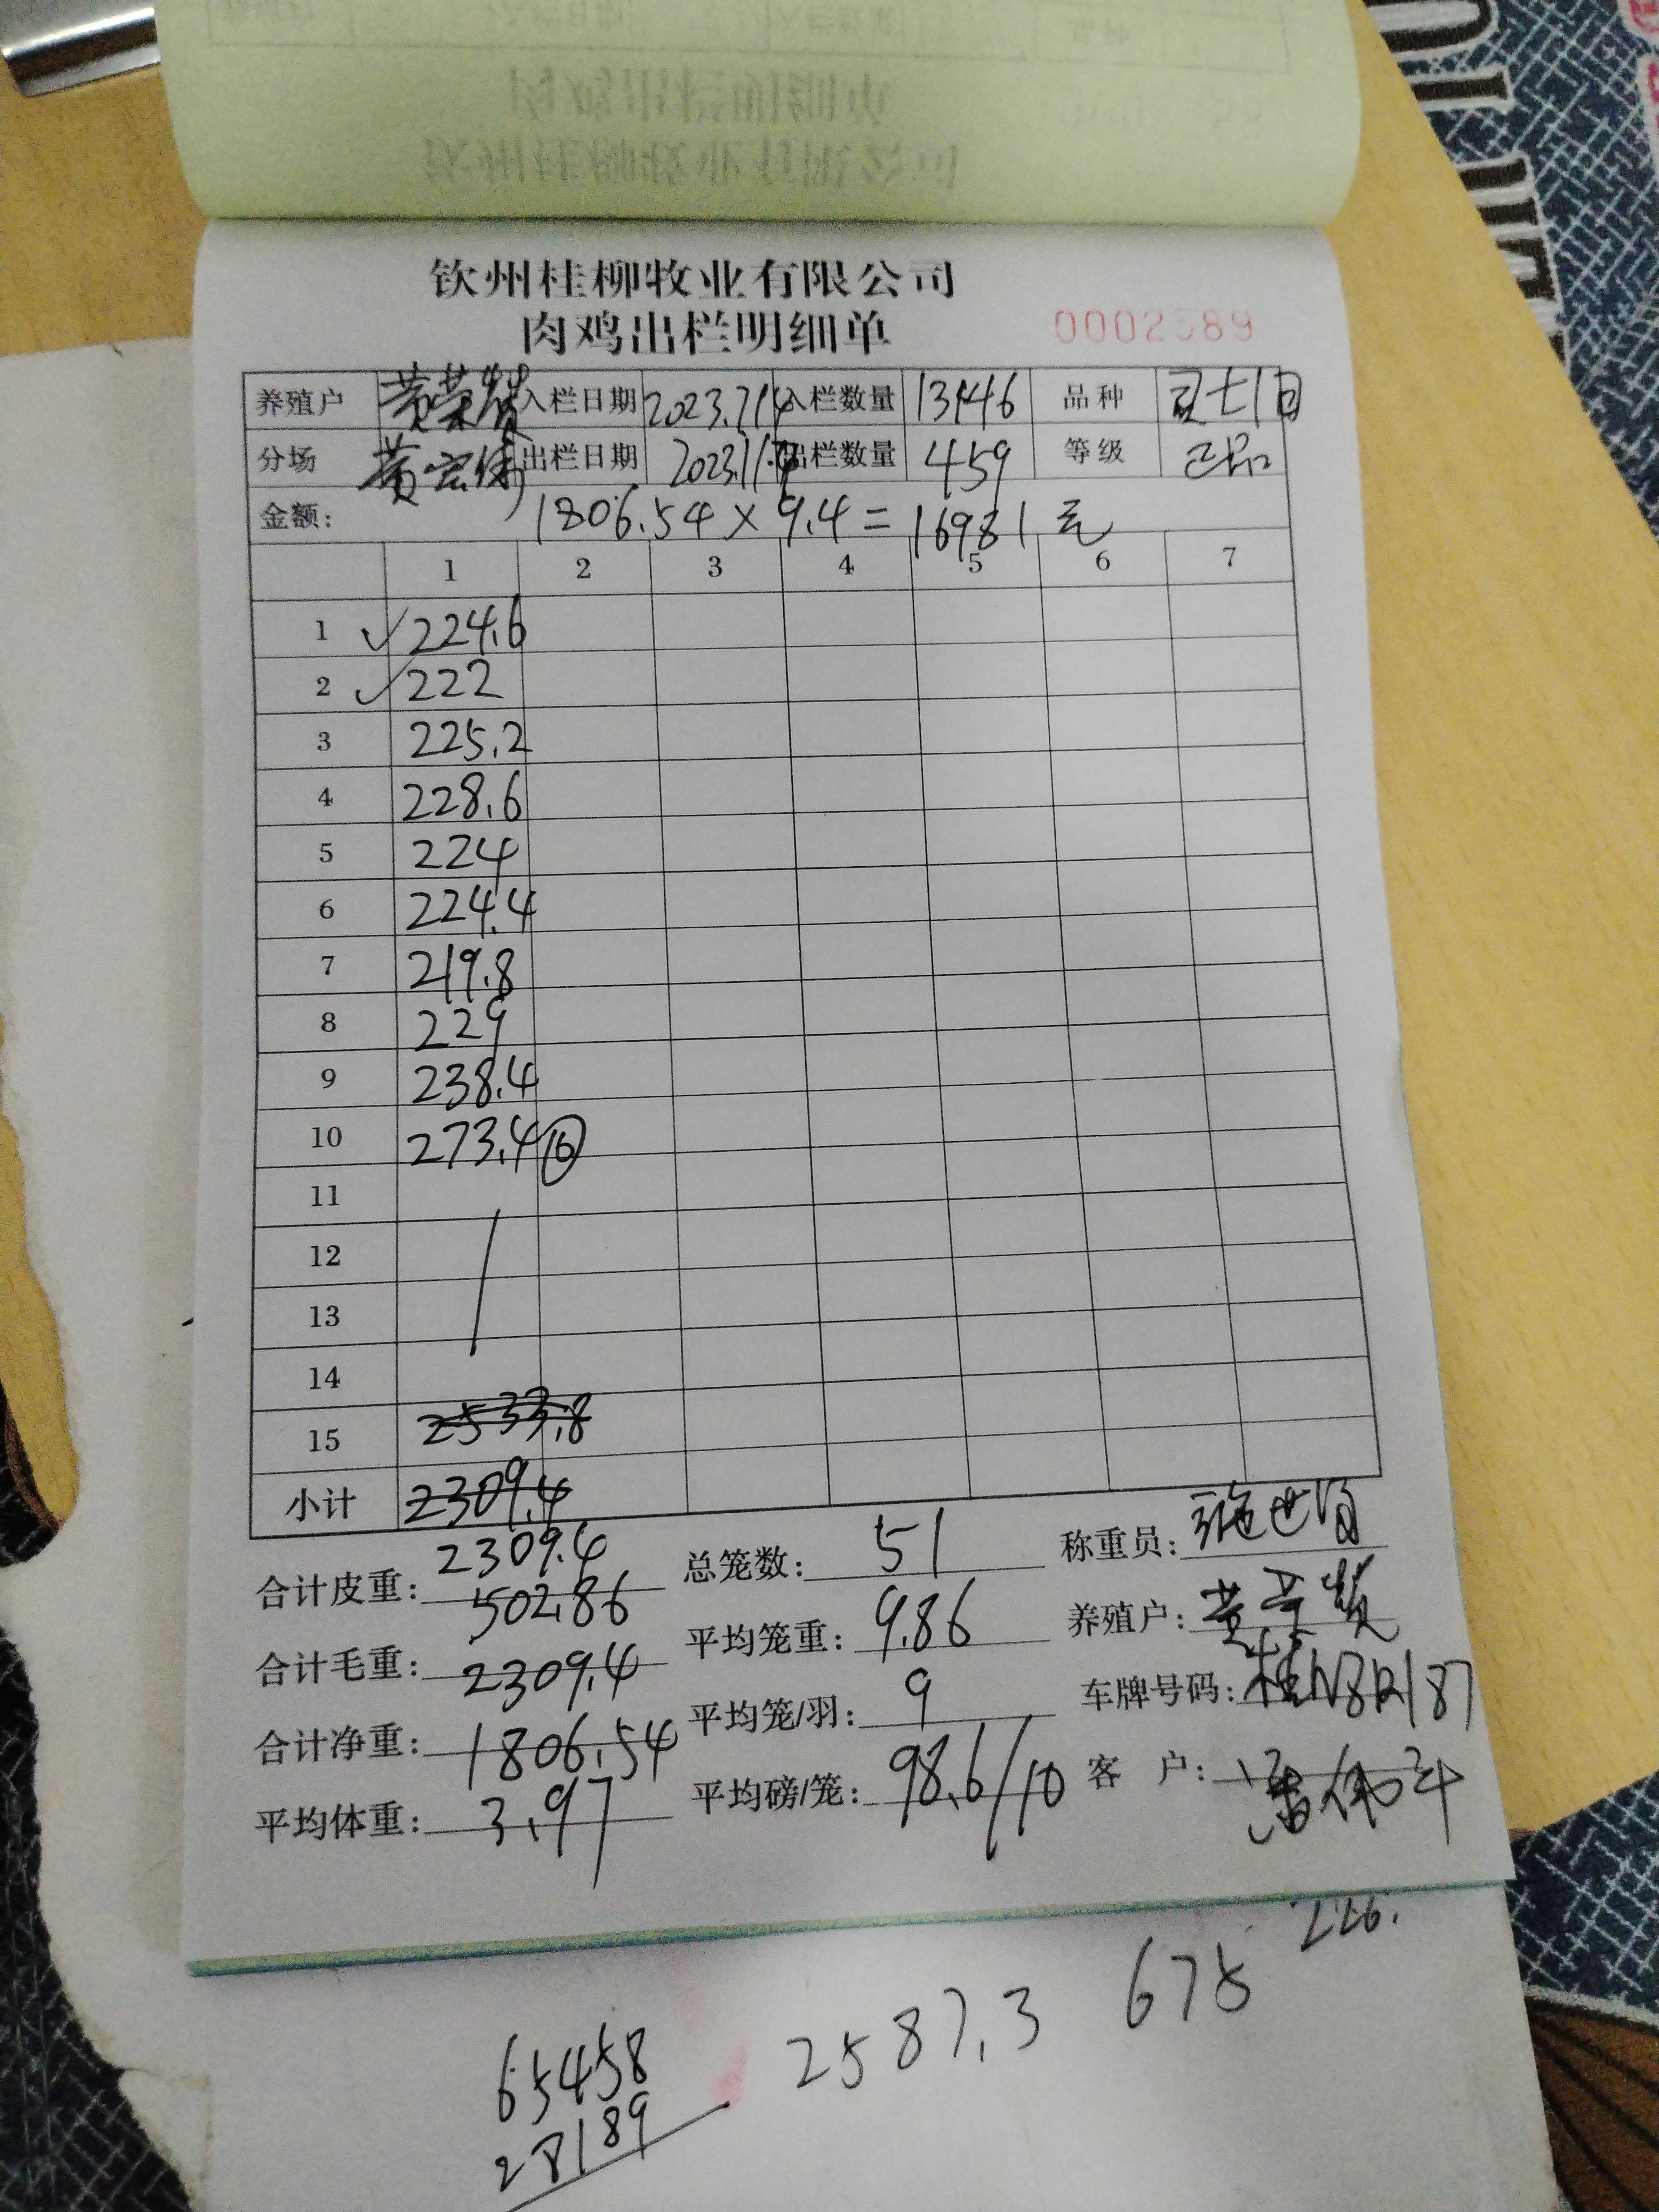 钦州桂柳牧业有限公司
肉鸡出栏明细单 0002589
养殖户 黄荣贤 入栏日期 2023.7.14 入栏数量 13446 品种
分场 黄宏伟 出栏日期 2023.11. 出栏数量 459 等级 正品
金额: 1806.54 × 9.4 = 16981元
1 2 3 4 5 6 7
1 224.6
2 222
3 225.2
4 228.6
5 224
6 224.4
7 219.8
8 229
9 238.4
10 273.4 ⑥
11
12
13
14
15 2533.8
小计 2309.4
合计皮重: 2309.4 502.86 总笼数: 51 称重员:
合计毛重: 2309.4 平均笼重: 9.86 养殖户: 黄荣贤
合计净重: 1806.54 平均笼/羽: 9 车牌号码: 桂N8R187
平均体重: 3.97 平均磅/笼: 98.6/10 客 户:
226.
65458 2587.3 675
28189